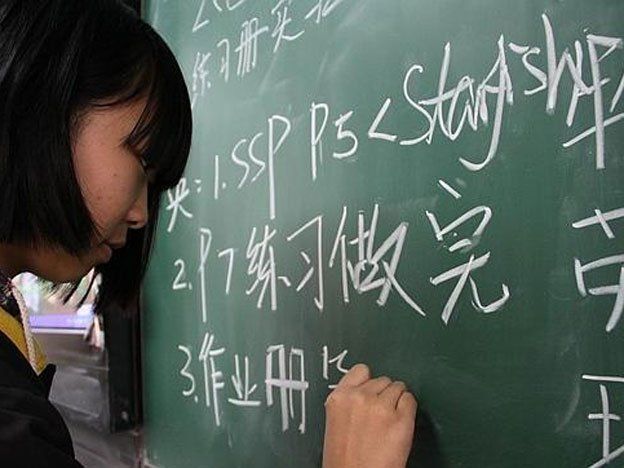 练习册英
英:1.SSP P5<Starship
2.P7练习做完
3.作业册